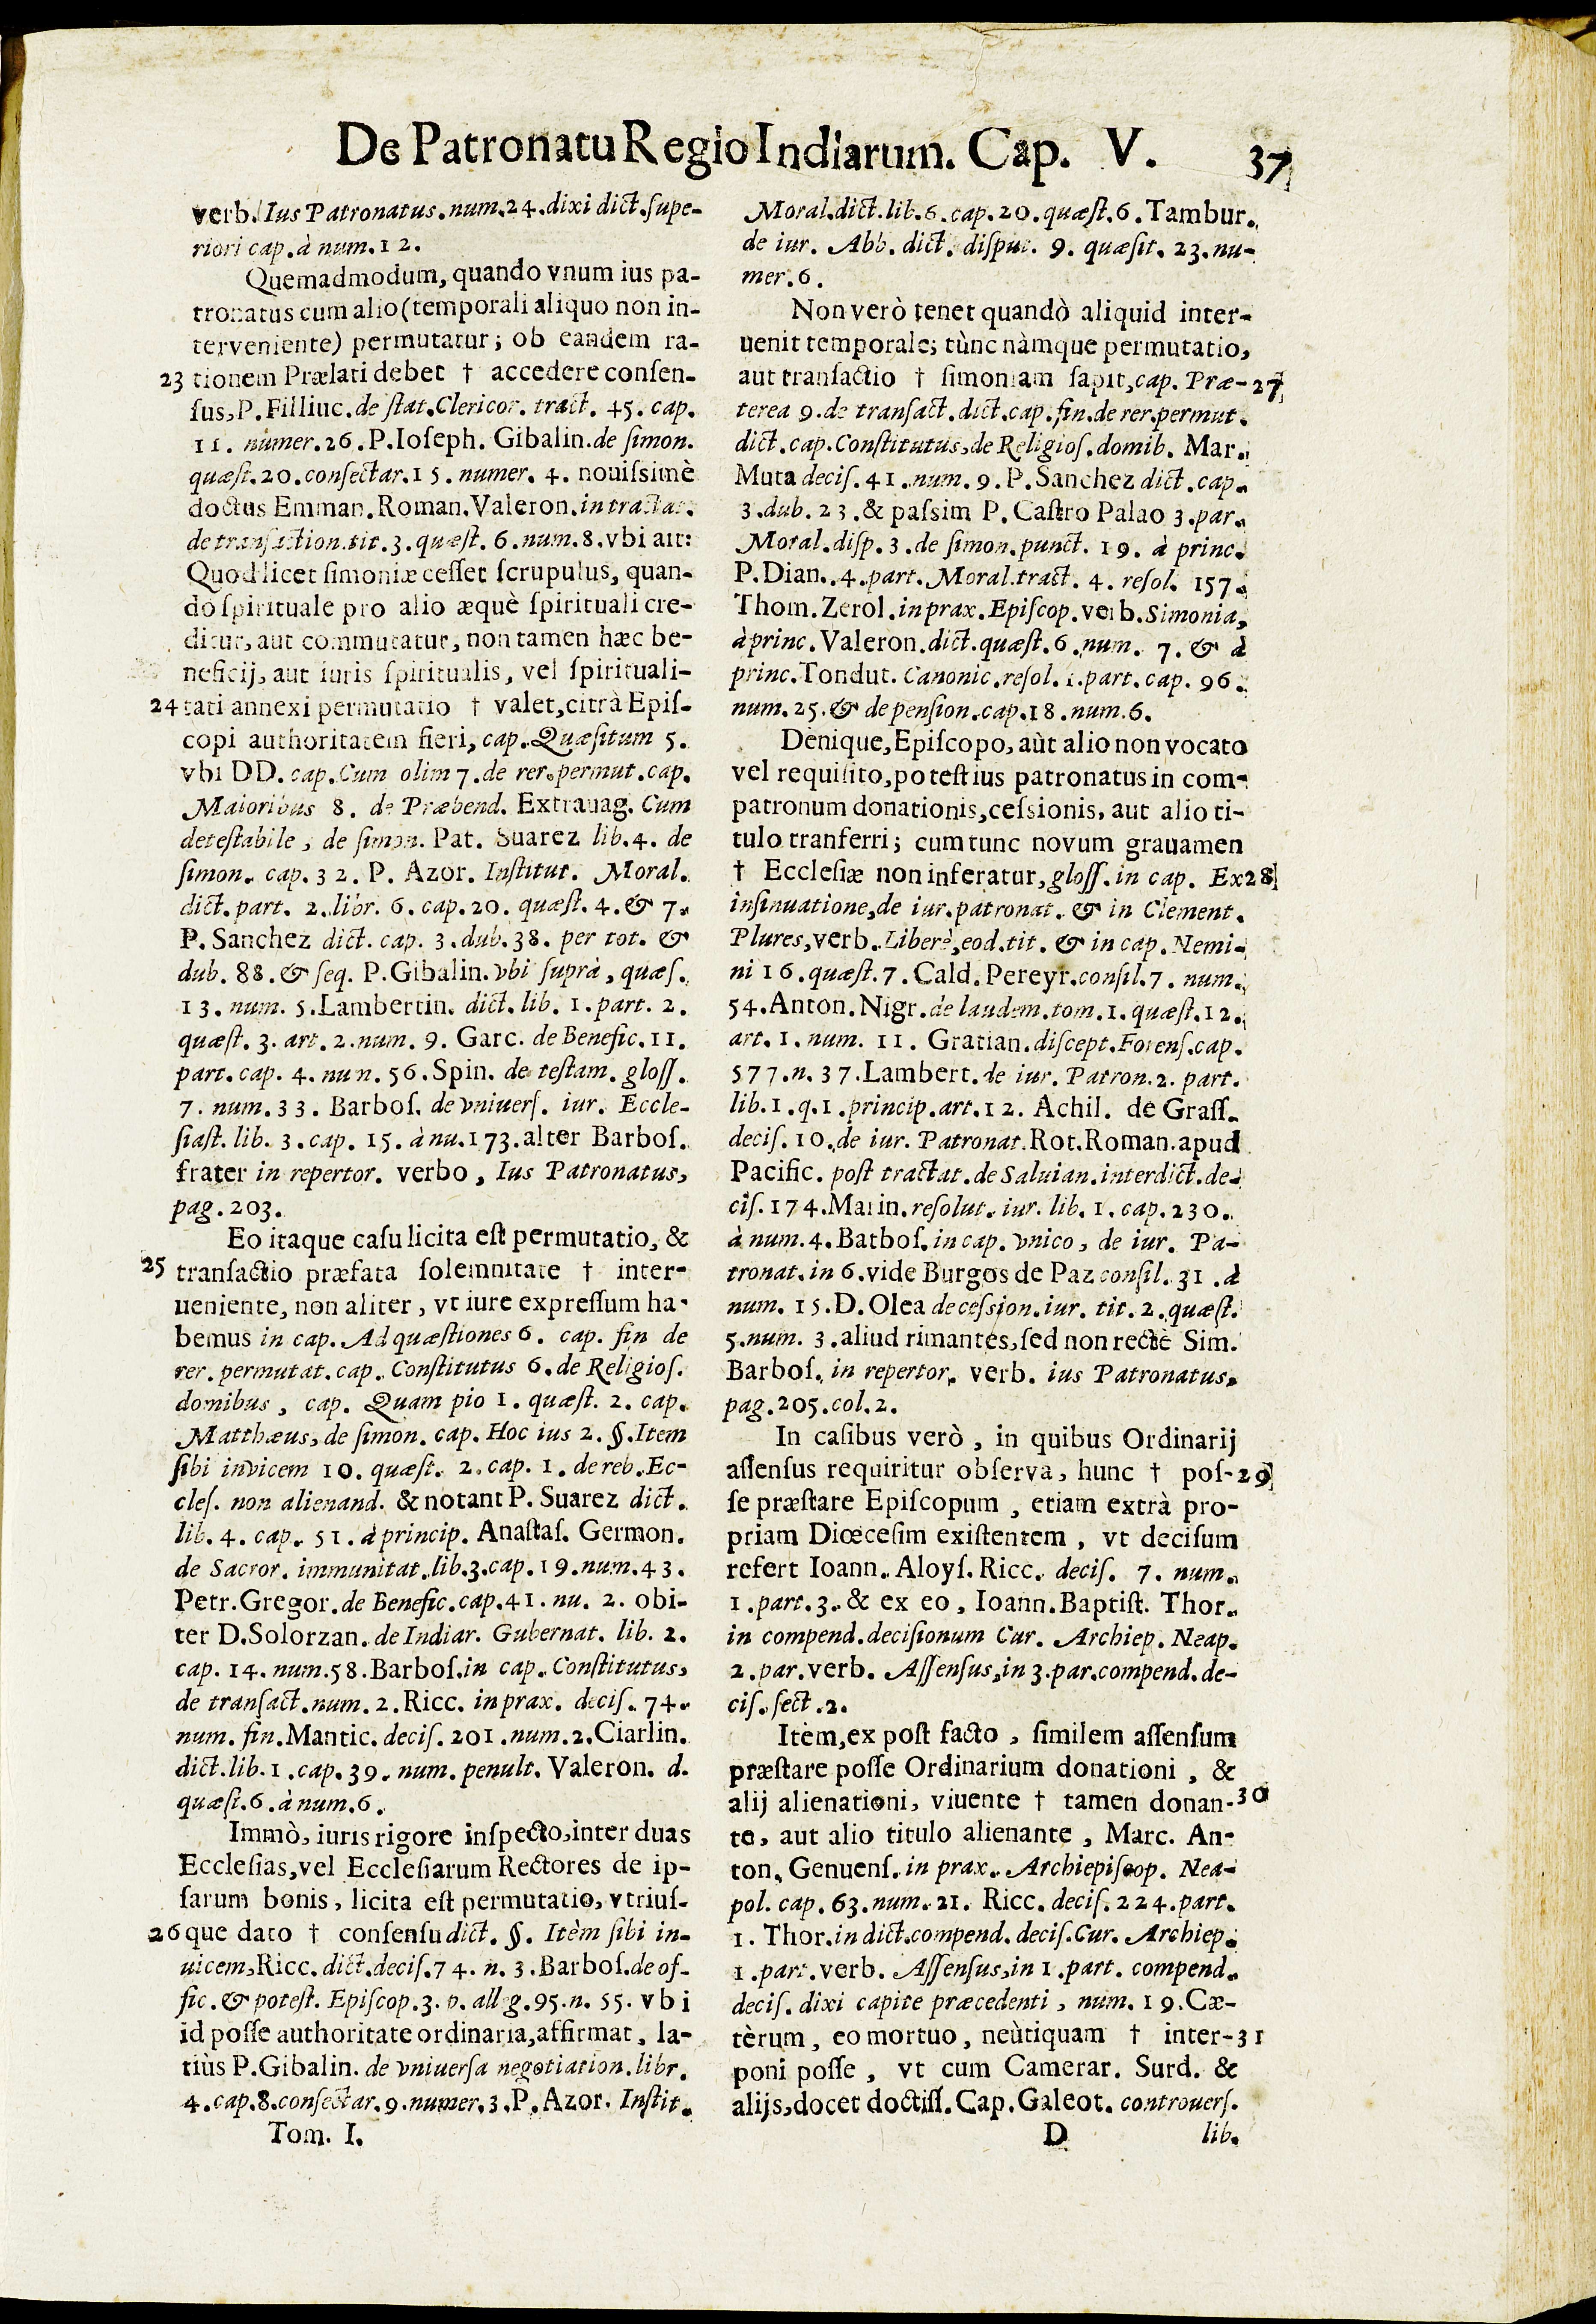 De Patronatu Regio Indiarum. Cap. V. 37
verb. Ius Patronatus. num. 24. dixi dict. ſupe-
riori cap. à num. 12.
Quemadmodum, quando vnum ius pa-
tronatus cum alio (temporali aliquo non in-
terveniente) permutatur; ob eandem ra-
23 tionem Prælati debet † accedere conſen-
ſus, P. Filliuc. de ſtat. Clericor. tract. 45. cap.
11. numer. 26. P. Ioſeph. Gibalin. de ſimon.
quæſt. 20. conſectar. 15. numer. 4. nouiſsimè
doctus Emman. Roman. Valeron. in tractat.
de tranſaction. tit. 3. quæſt. 6. num. 8. vbi ait:
Quod licet ſimoniæ ceſſet ſcrupulus, quan-
do ſpirituale pro alio æquè ſpirituali cre-
ditur, aut commutatur, non tamen hæc be-
neficij, aut iuris ſpiritualis, vel ſpirituali-
24 tati annexi permutatio † valet, citrà Epiſ-
copi authoritatem fieri, cap. Quæſitum 5.
vbi DD. cap. Cum olim 7. de rer. permut. cap.
Maioribus 8. de Præbend. Extrauag. Cum
deteſtabile, de ſimon. Pat. Suarez lib. 4. de
ſimon. cap. 32. P. Azor. Inſtitut. Moral.
dict. part. 2. libr. 6. cap. 20. quæſt. 4. & 7.
P. Sanchez dict. cap. 3. dub. 38. per tot. &
dub. 88. & ſeq. P. Gibalin. vbi ſuprà, quæſ.
13. num. 5. Lambertin. dict. lib. 1. part. 2.
quæſt. 3. art. 2. num. 9. Garc. de Benefic. 11.
part. cap. 4. nun. 56. Spin. de teſtam. gloſſ.
7. num. 33. Barboſ. de vniuerſ. iur. Eccle-
ſiaſt. lib. 3. cap. 15. à nu. 173. alter Barboſ.
frater in repertor. verbo, Ius Patronatus,
pag. 203.
Eo itaque caſu licita eſt permutatio, &
25 tranſactio præfata ſolemnitate † inter-
ueniente, non aliter, vt iure expreſſum ha-
bemus in cap. Ad quæſtiones 6. cap. fin de
rer. permutat. cap. Conſtitutus 6. de Religioſ.
domibus, cap. Quam pio 1. quæſt. 2. cap.
Matthæus, de ſimon. cap. Hoc ius 2. §. Item
ſibi invicem 10. quæſt. 2. cap. 1. de reb. Ec-
cleſ. non alienand. & notant P. Suarez dict.
lib. 4. cap. 51. à princip. Anaſtaſ. Germon.
de Sacror. immunitat. lib. 3. cap. 19. num. 43.
Petr. Gregor. de Benefic. cap. 41. nu. 2. obi-
ter D. Solorzan. de Indiar. Gubernat. lib. 2.
cap. 14. num. 58. Barboſ. in cap. Conſtitutus,
de tranſact. num. 2. Ricc. in prax. deciſ. 74.
num. fin. Mantic. deciſ. 201. num. 2. Ciarlin.
dict. lib. 1. cap. 39. num. penult. Valeron. d.
quæſt. 6. à num. 6.
Immò, iuris rigore inſpecto, inter duas
Eccleſias, vel Eccleſiarum Rectores de ip-
ſarum bonis, licita eſt permutatio, vtriuſ-
26 que dato † conſenſu dict. §. Itèm ſibi in-
uicem, Ricc. dict. deciſ. 74. n. 3. Barboſ. de of-
fic. & poteſt. Epiſcop. 3. p. alleg. 95. n. 55. vbi
id poſſe authoritate ordinaria, affirmat, la-
tiùs P. Gibalin. de vniuerſa negotiation. libr.
4. cap. 8. conſectar. 9. numer. 3. P. Azor. Inſtit.
Tom. I.
Moral. dict. lib. 6. cap. 20. quæſt. 6. Tambur.
de iur. Abb. dict. diſput. 9. quæſit. 23. nu-
mer. 6.
Non verò tenet quandò aliquid inter-
uenit temporale; tùnc nàmque permutatio,
aut tranſactio † ſimoniam ſapit, cap. Præ- 27
terea 9. de tranſact. dict. cap. fin. de rer. permut.
dict. cap. Conſtitutus, de Religioſ. domib. Mar.
Muta deciſ. 41. num. 9. P. Sanchez dict. cap.
3. dub. 23. & paſsim P. Caſtro Palao 3. par.
Moral. diſp. 3. de ſimon. punct. 19. à princ.
P. Dian. 4. part. Moral. tract. 4. reſol. 157.
Thom. Zerol. in prax. Epiſcop. verb. Simonia,
à princ. Valeron. dict. quæſt. 6. num. 7. & à
princ. Tondut. Canonic. reſol. 1. part. cap. 96.
num. 25. & de penſion. cap. 18. num. 6.
Denique, Epiſcopo, aùt alio non vocato
vel requiſito, poteſt ius patronatus in com-
patronum donationis, ceſsionis, aut alio ti-
tulo tranferri; cum tunc novum grauamen
† Eccleſiæ non inferatur, gloſſ. in cap. Ex 28
inſinuatione, de iur. patronat. & in Clement.
Plures, verb. Liberè, eod. tit. & in cap. Nemi-
ni 16. quæſt. 7. Cald. Pereyr. conſil. 7. num.
54. Anton. Nigr. de laudem. tom. 1. quæſt. 12.
art. 1. num. 11. Gratian. diſcept. Forenſ. cap.
577. n. 37. Lambert. de iur. Patron. 2. part.
lib. 1. q. 1. princip. art. 12. Achil. de Graſſ.
deciſ. 10. de iur. Patronat. Rot. Roman. apud
Pacific. poſt tractat. de Saluian. interdict. de-
ciſ. 174. Marin. reſolut. iur. lib. 1. cap. 230.
à num. 4. Barboſ. in cap. vnico, de iur. Pa-
tronat. in 6. vide Burgos de Paz conſil. 31. à
num. 15. D. Olea de ceſsion. iur. tit. 2. quæſt.
5. num. 3. aliud rimantes, ſed non rectè Sim.
Barboſ. in repertor. verb. ius Patronatus,
pag. 205. col. 2.
In caſibus verò, in quibus Ordinarij
aſſenſus requiritur obſerva, hunc † poſ- 29
ſe præſtare Epiſcopum, etiam extrà pro-
priam Diœceſim exiſtentem, vt deciſum
refert Ioann. Aloyſ. Ricc. deciſ. 7. num.
1. part. 3. & ex eo, Ioann. Baptiſt. Thor.
in compend. deciſionum Cur. Archiep. Neap.
2. par. verb. Aſſenſus, in 3. par. compend. de-
ciſ. ſect. 2.
Itèm, ex poſt facto, ſimilem aſſenſum
præſtare poſſe Ordinarium donationi, &
alij alienationi, viuente † tamen donan- 30
te, aut alio titulo alienante, Marc. An-
ton. Genuenſ. in prax. Archiepiſcop. Nea-
pol. cap. 63. num. 21. Ricc. deciſ. 224. part.
1. Thor. in dict. compend. deciſ. Cur. Archiep.
1. part. verb. Aſſenſus, in 1. part. compend.
deciſ. dixi capite præcedenti, num. 19. Cæ-
tèrum, eo mortuo, neùtiquam † inter- 31
poni poſſe, vt cum Camerar. Surd. &
alijs, docet doctiſſ. Cap. Galeot. controuerſ.
D lib.